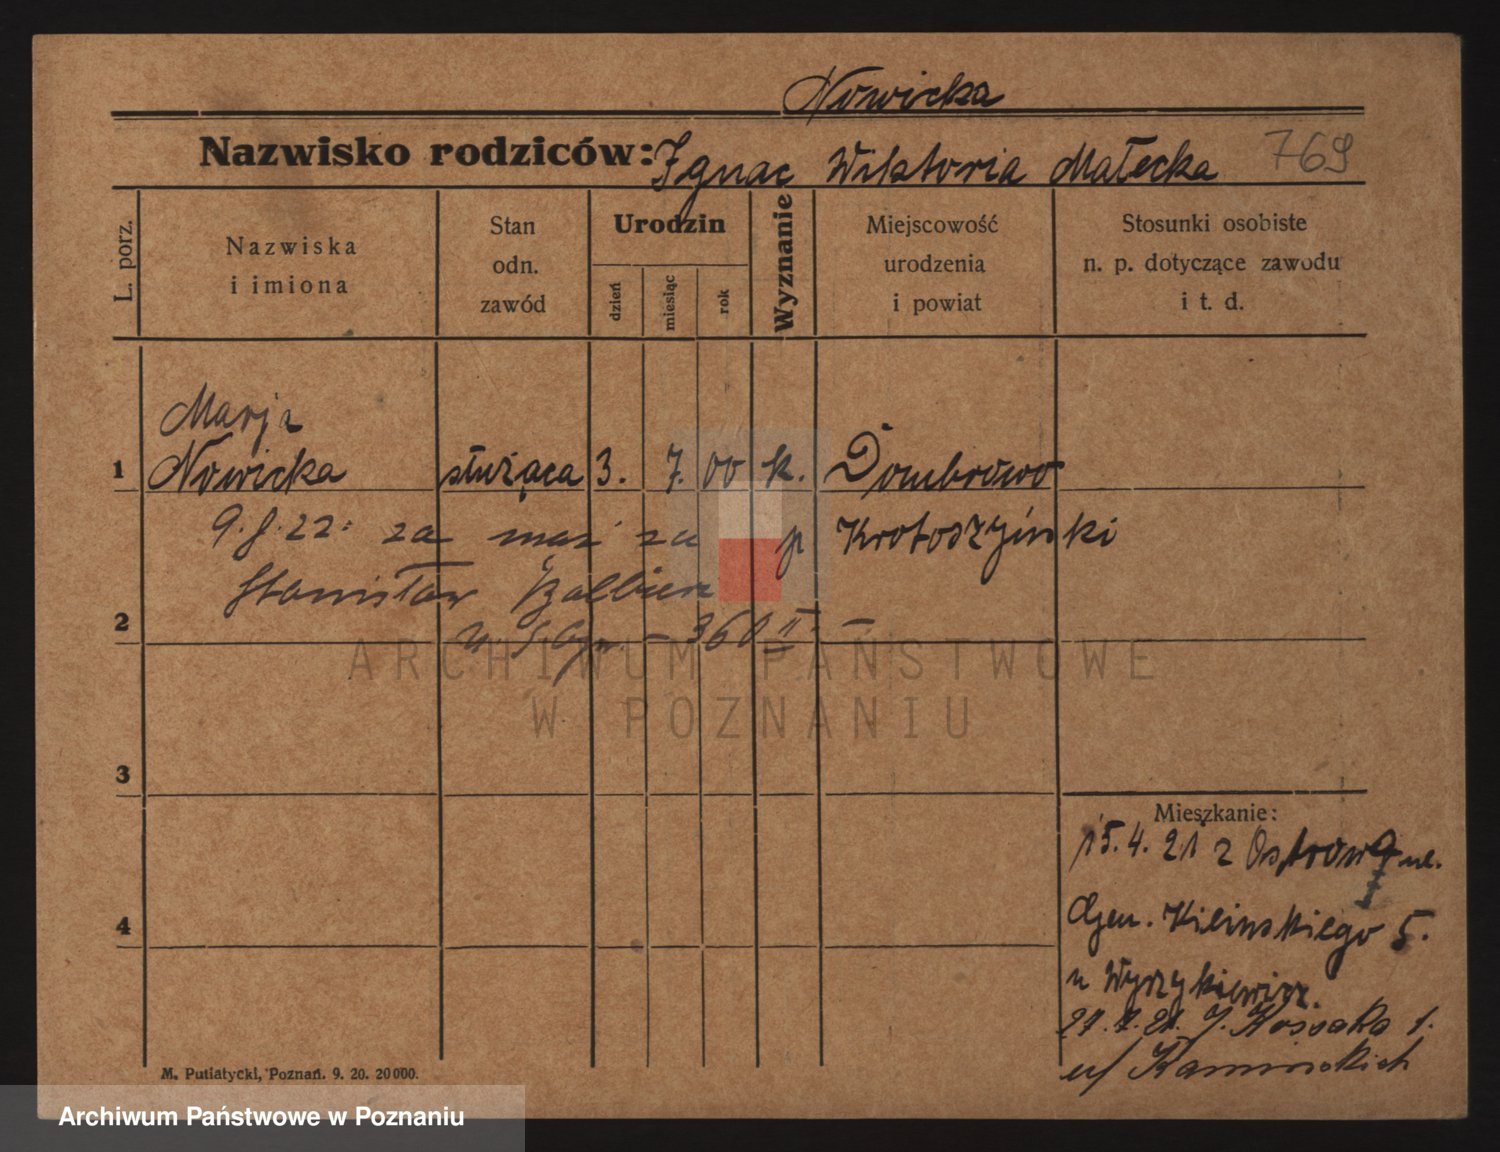 Nowicka
Nazwisko rodziców: Ignac Wiktoria Małecka 769
L. porz.
Nazwiska
i imiona
Stan
odn.
zawód
Urodzin
dzień
miesiąc
rok
Wyznanie
Miejscowość
urodzenia
i powiat
Stosunki osobiste
n. p. dotyczące zawodu
i t. d.
Marja
1 Nowicka służąca 3. 7. 00 k. Dombrowo
9.8.22. za mąż za p Krotoszyński
Stanisław
2 360 II. —
ARCHIWUM PAŃSTWOWE
W POZNANIU
3
Mieszkanie:
15.4.21 z Ostrowa ul.
4
Gen. Kilinskiego 5.
u Wyrzykiewicz.
J. Kossaka 1.
u/ Kaminskich
M. Putiatycki, Poznań. 9. 20. 20000.
Archiwum Państwowe w Poznaniu